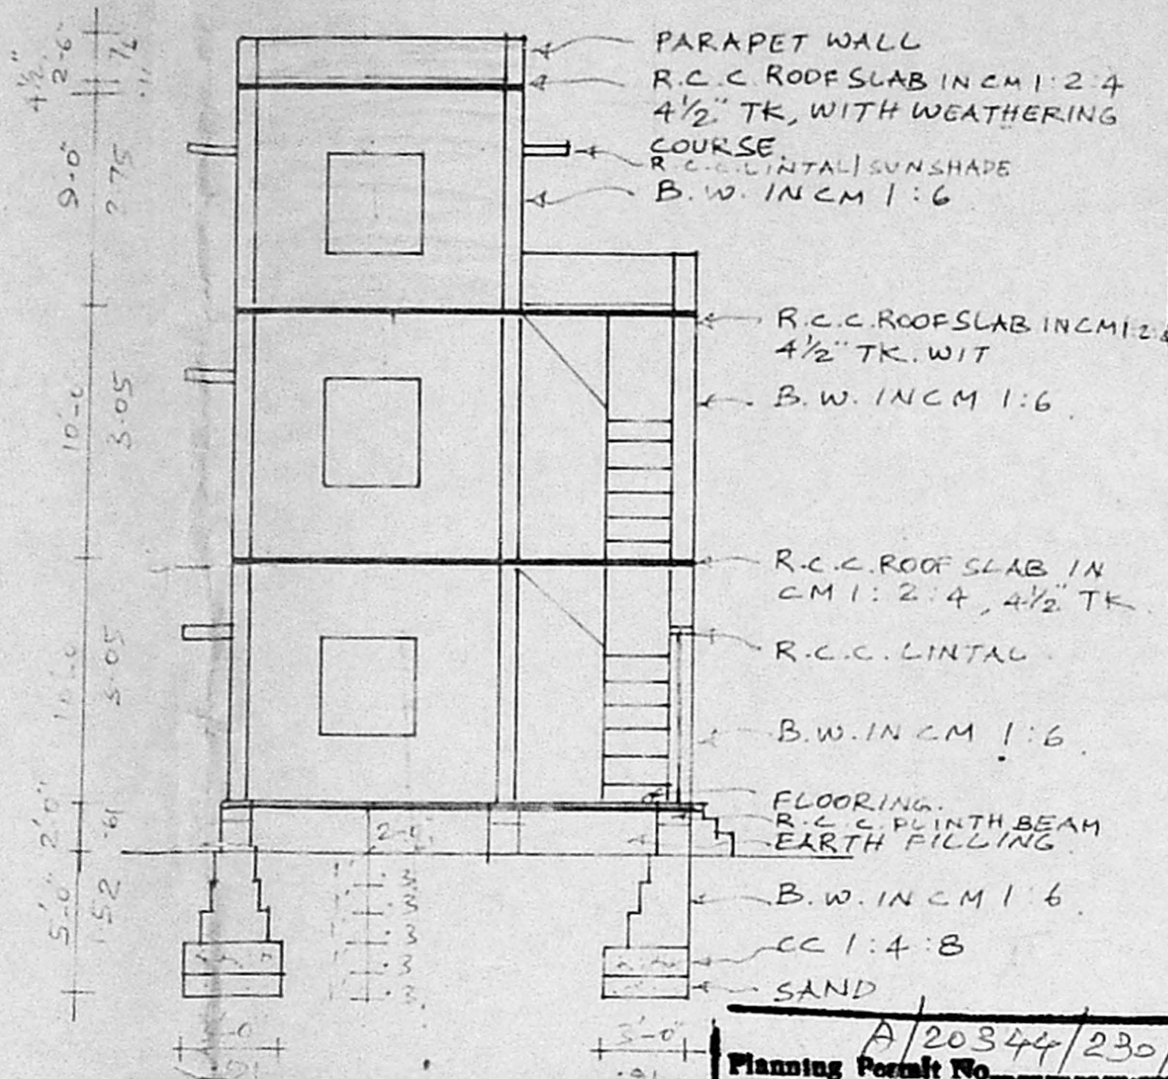 PARAPET WALL
R.C.C. ROOF SLAB IN CM 1:2:4
4½" TK, WITH WEATHERING
COURSE
R.C.C. LINTAL/SUNSHADE
B.W. IN CM 1:6
R.C.C. ROOF SLAB IN CM 1:2:
4½" TK. WIT
B.W. IN CM 1:6.
R.C.C. ROOF SLAB IN
CM 1:2:4, 4½" TK.
R.C.C. LINTAL
B.W. IN CM 1:6.
FLOORING.
R.C.C. PLINTH BEAM
EARTH FILLING
B.W. IN CM 1:6.
CC 1:4:8
SAND
4½"
2-6
9'-0"
2.75
10'-0
3.05
3.05
2'0"
.61
5'-0"
1.52
.3
.3
.3
.3
3'-0"
A/20344/230/
Planning Permit No.